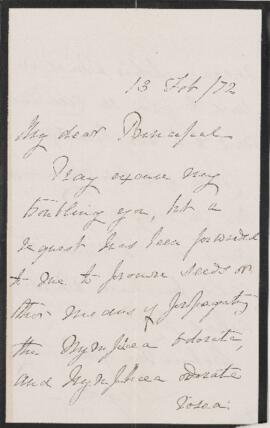 13 Feb /72
My dear Principal
Pray excuse my
troubling you, but a
request has been forwarded
to me to procure seeds or
other means of propagating
the Nymphea odorata,
and Nymphea odorata
rosea